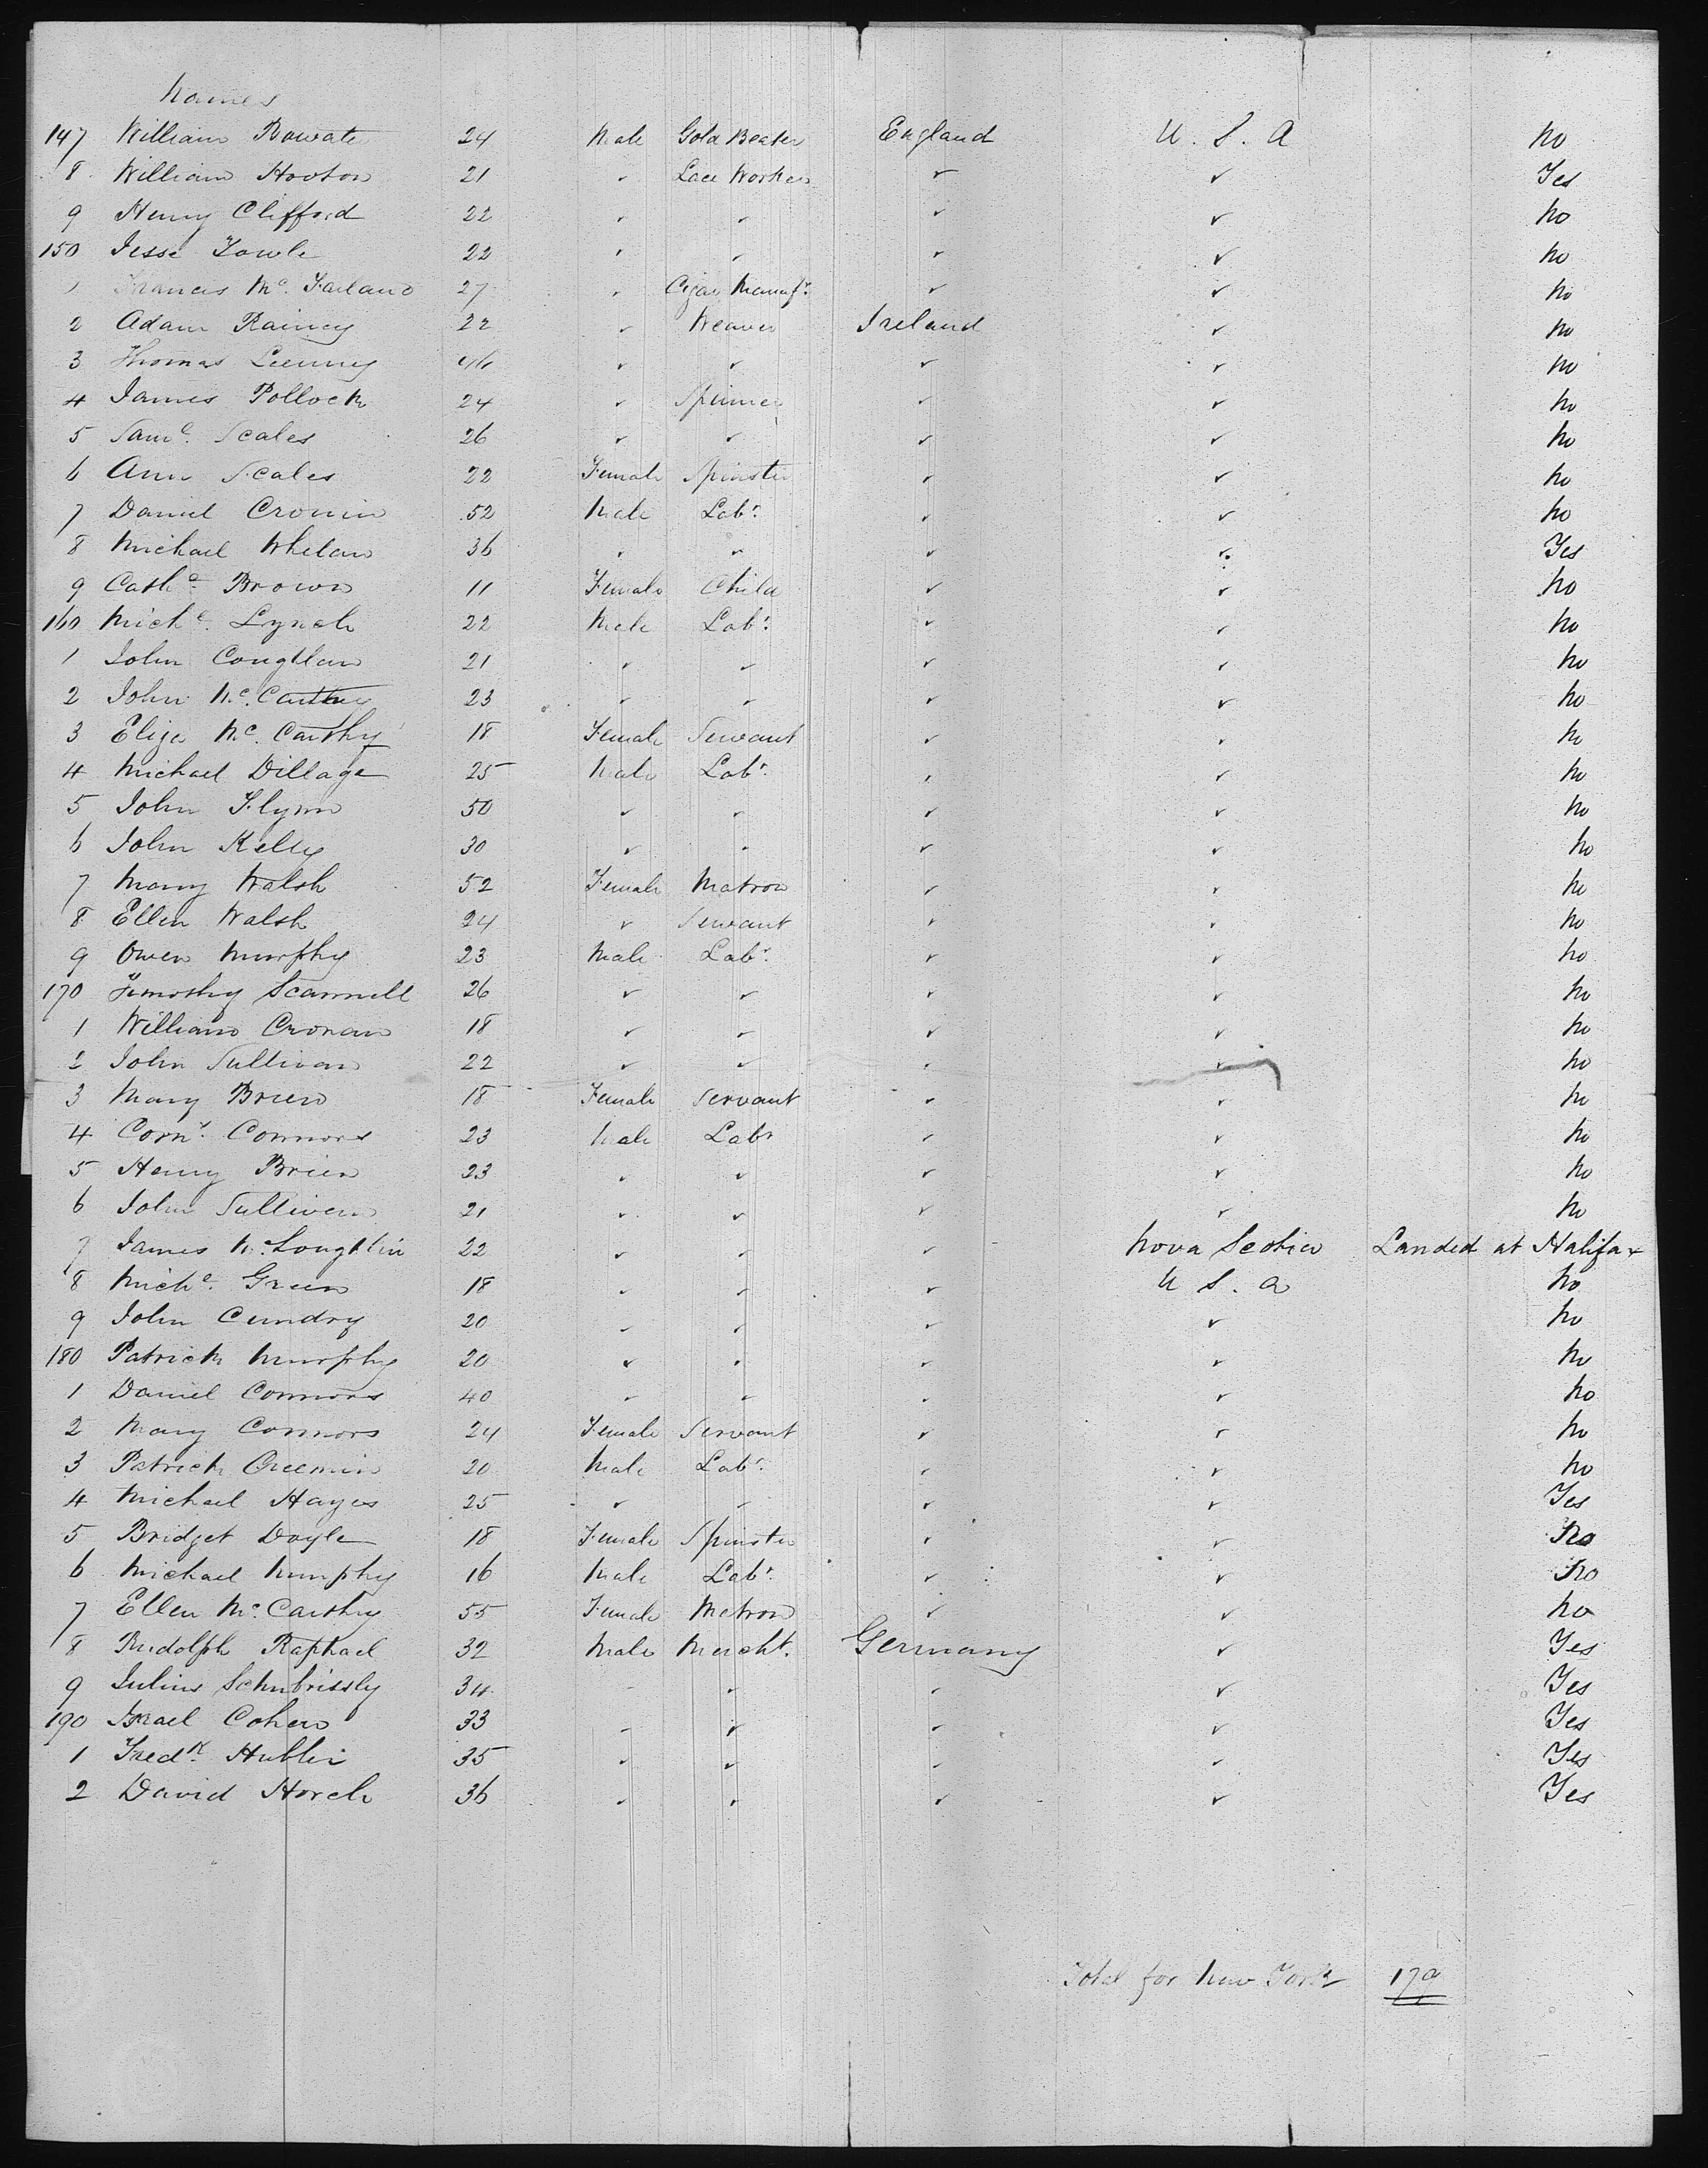 Names
147 William Rowatt 24 Male Gold Beater England U. S. A No
8 William Hooton 21 " Lace Worker " " Yes
9 Henry Clifford 22 " " " " No
150 Jesse Towle 22 " " " " No
1 Francis Mc. Farland 27 " Cigar Manufr. " " No
2 Adam Rainey 22 " Weaver Ireland " No
3 Thomas Leenny 46 " " " " No
4 James Pollock 24 " Spinner " " No
5 Saml. Scales 26 " " " " No
6 Ann Scales 22 Female Spinster " " No
7 Daniel Cronin 52 Male Labr. " " No
8 Michael Whelan 36 " " " " Yes
9 Cathe. Brown 11 Female Child " " No
160 Michl. Lynch 22 Male Labr. " " No
1 John Coughlan 21 " " " " No
2 John Mc. Carthy 23 " " " " No
3 Eliza Mc. Carthy 18 Female Servant " " No
4 Michael Dillage 25 Male Labr. " " No
5 John Flynn 50 " " " " No
6 John Kelly 30 " " " " No
7 Mary Walsh 52 Female Matron " " No
8 Ellen Walsh 24 " Servant " " No
9 Owen Murphy 23 Male Labr. " " No
170 Timothy Scannell 26 " " " " No
1 William Cronan 18 " " " " No
2 John Sullivan 22 " " " " No
3 Mary Brien 18 Female Servant " " No
4 Corns. Connors 23 Male Labr " " No
5 Henry Brien 23 " " " " No
6 John Sullivan 21 " " " " No
7 James Mc. Loughlin 22 " " " Nova Scotia Landed at Halifax
8 Michl. Green 18 " " " U S. a No
9 John Cundry 20 " " " " No
180 Patrick Murphy 20 " " " " No
1 Daniel Connors 40 " " " " No
2 Mary Connors 24 Female Servant " " No
3 Patrick Creemin 20 Male Labr. " " No
4 Michael Hayes 25 " " " " Yes
5 Bridget Doyle 18 Female Spinster " " No
6 Michael Murphy 16 Male Labr. " " No
7 Ellen Mc. Carthy 55 Female Matron " " No
8 Rudolph Raphael 32 Male Mercht. Germany " Yes
9 Julius Schubrissly 34 " " " " Yes
190 Israel Cohen 33 " " " " Yes
1 Fredk. Hubler 35 " " " " Yes
2 David Horch 36 " " " " Yes
Total for New York 179